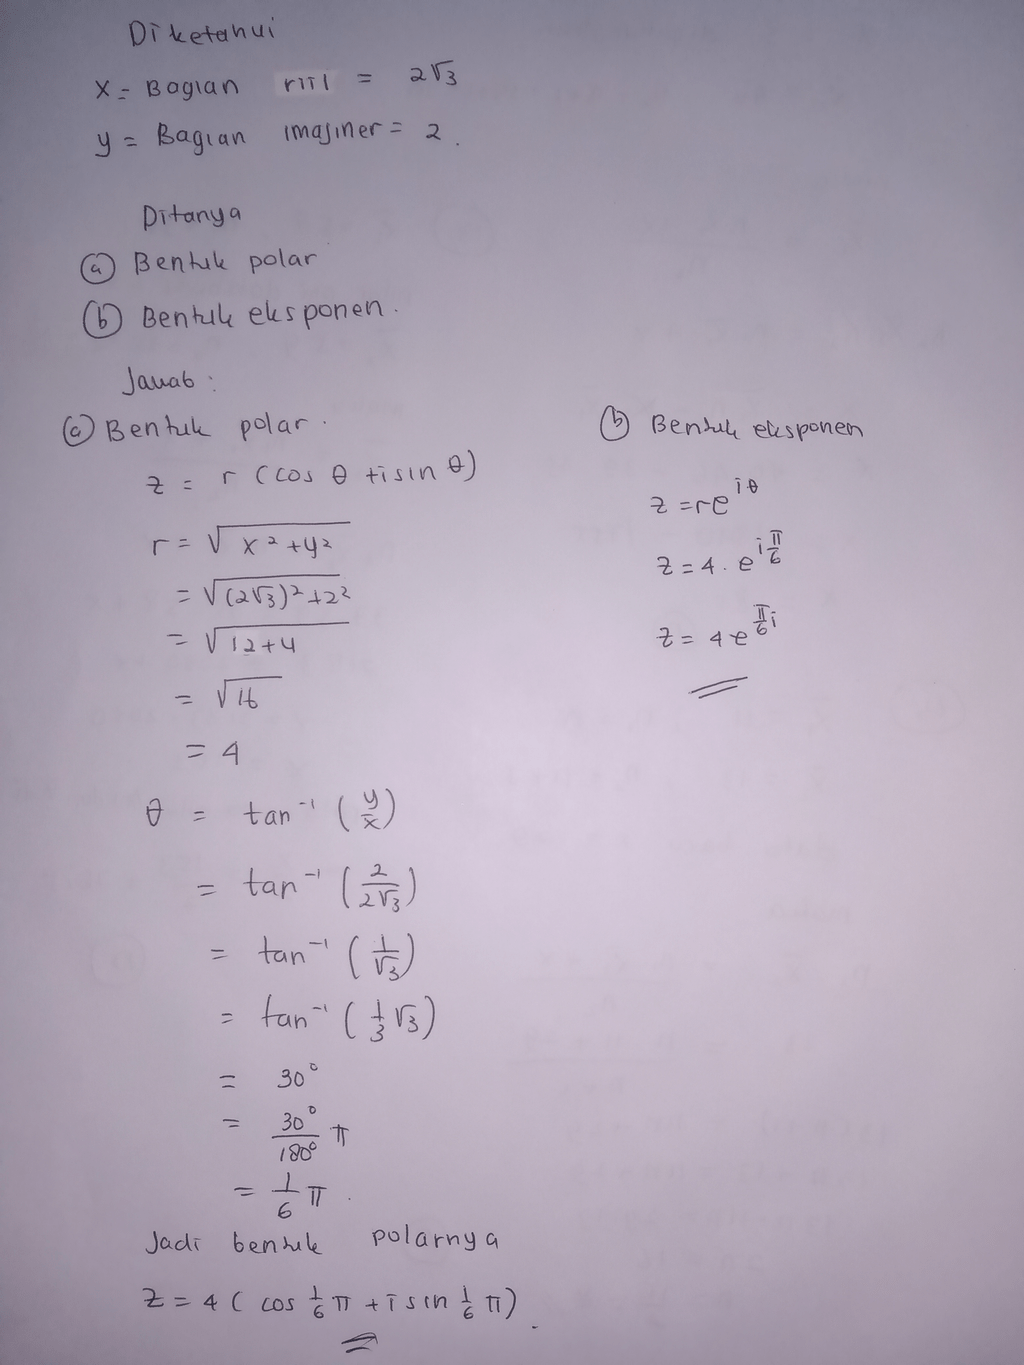 Diketahui
x = Bagian riil = 2√3
y = Bagian imajiner = 2.
Ditanya
ⓐ Bentuk polar
ⓑ Bentuk eksponen.
Jawab :
ⓐ Bentuk polar.
z = r (cos θ + i sin θ)
r = √x² + y²
= √(2√3)² + 2²
= √12 + 4
= √16
= 4
θ = tan⁻¹ (y/x)
= tan⁻¹ (2/2√3)
= tan⁻¹ (1/√3)
= tan⁻¹ (1/3 √3)
= 30°
= 30°/180° π
= 1/6 π.
Jadi bentuk polarnya
z = 4 ( cos 1/6 π + i sin 1/6 π).
ⓑ Bentuk eksponen
z = re^iθ
z = 4. e^i π/6
z = 4e^π/6 i